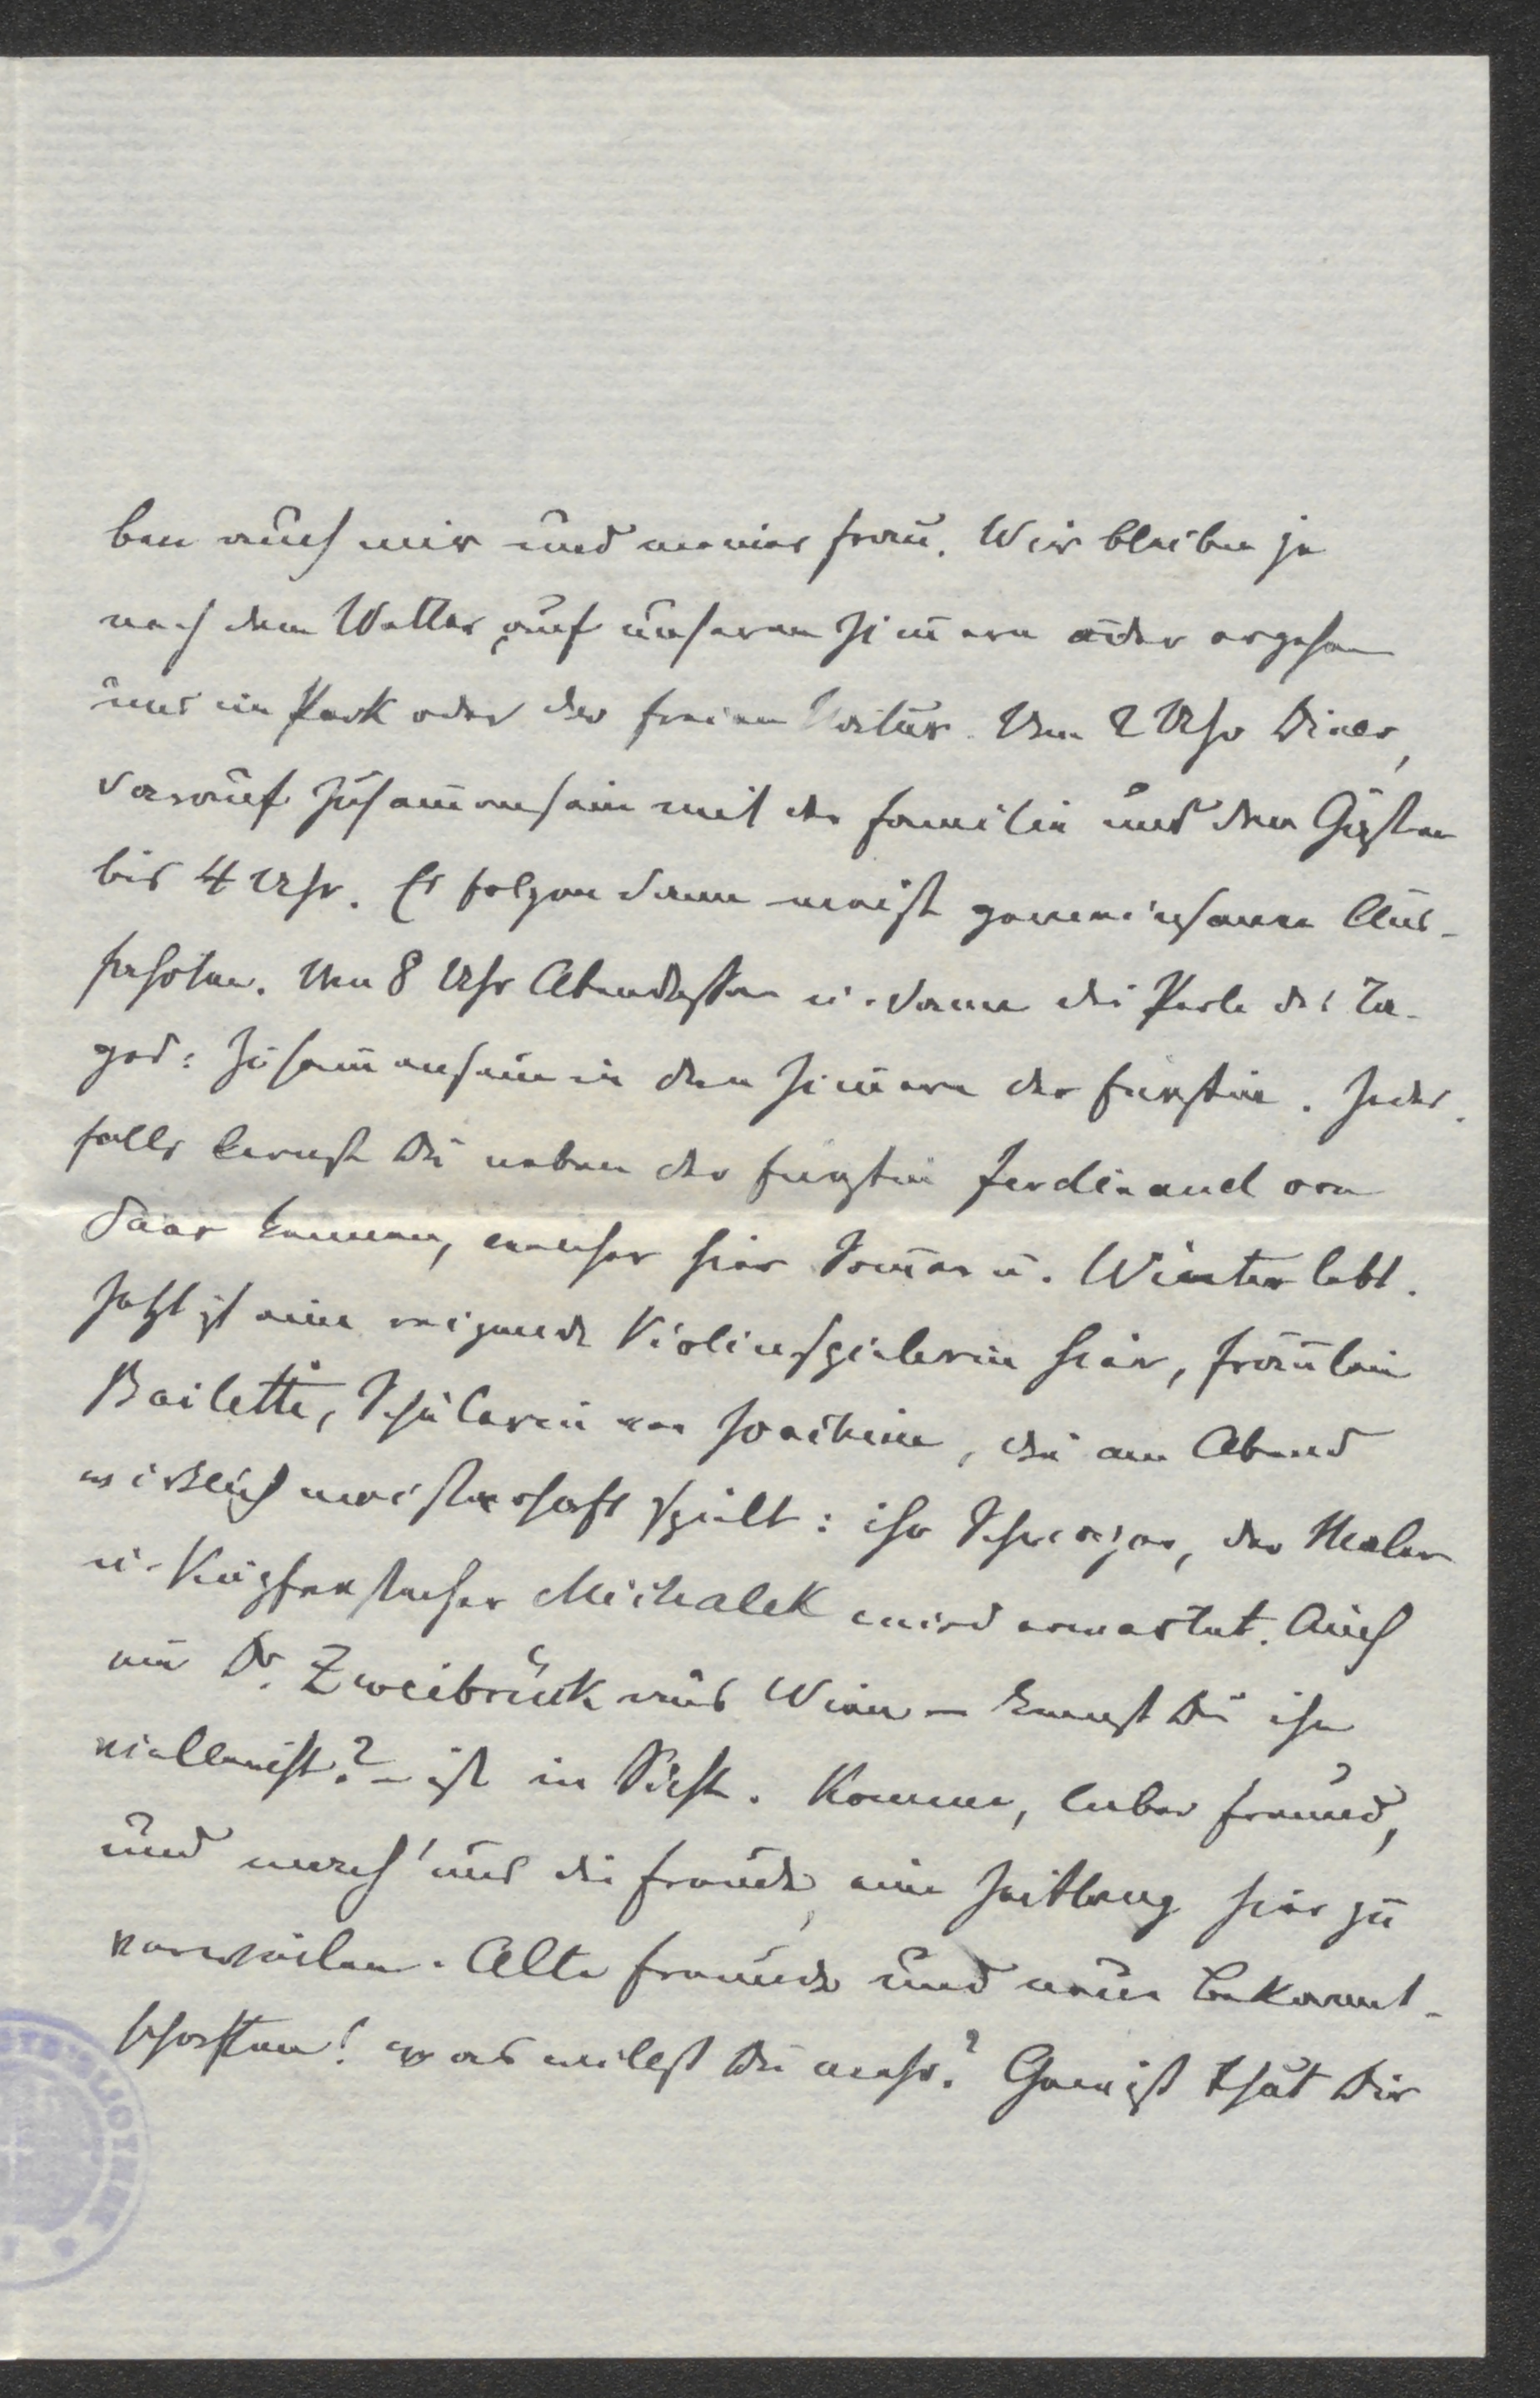 ben auch mir und meiner Frau. Wir bleiben je
nach dem Wetter auf unseren Zim̅ern oder ergehen
uns im Park oder der freien Natur. Um 2 Uhr Diner,
darauf Zusam̅ensein mit der Familie und den Gästen
bis 4 Uhr. Es folgen dann meist gemeinsame Aus-
fahrten. Um 8 Uhr Abendessen u. dann die Perle des Ta-
ges: Zusam̅ensein in den Zim̅ern der Fürstin. Jeden-
falls lernst Du neben der Fürstin Ferdinand von
Saar kennen, welcher hier Som̅er u. Winter lebt.
Jetzt ist eine reizende Violinspielerin hier, Fräulein
Bailetti, Schülerin von Joachim, die am Abend
wirklich meisterhaft spielt: ihr Schwager, der Maler
u. Kupferstecher Michalek wird erwartet. Auch
ein Dr. Zweibrück aus Wien – kennst Du ihn
vielleicht? – ist in Sicht. Komme, lieber Freund,
und mach' uns die Freude, eine Zeitlang hier zu
verweilen. Alte Freunde und neue Bekannt-
schaften! was willst Du mehr? Gewiß thut Dir